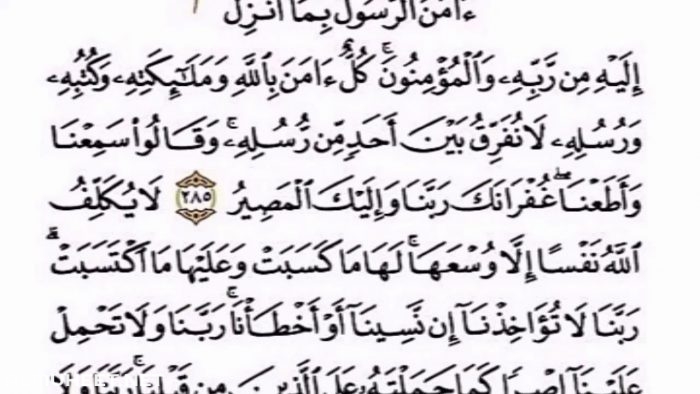 ءَامَنَ ٱلرَّسُولُ بِمَآ أُنزِلَ
إِلَيْهِ مِن رَّبِّهِۦ وَٱلْمُؤْمِنُونَۚ كُلٌّ ءَامَنَ بِٱللَّهِ وَمَلَٰٓئِكَتِهِۦ وَكُتُبِهِۦ
وَرُسُلِهِۦ لَا نُفَرِّقُ بَيْنَ أَحَدٍ مِّن رُّسُلِهِۦۚ وَقَالُوا۟ سَمِعْنَا
وَأَطَعْنَاۖ غُفْرَانَكَ رَبَّنَا وَإِلَيْكَ ٱلْمَصِيرُ ٢٨٥ لَا يُكَلِّفُ
ٱللَّهُ نَفْسًا إِلَّا وُسْعَهَاۚ لَهَا مَا كَسَبَتْ وَعَلَيْهَا مَا ٱكْتَسَبَتْۗ
رَبَّنَا لَا تُؤَاخِذْنَآ إِن نَّسِينَآ أَوْ أَخْطَأْنَاۚ رَبَّنَا وَلَا تَحْمِلْ
عَلَيْنَآ إِصْرًا كَمَا حَمَلْتَهُۥ عَلَى ٱلَّذِينَ مِن قَبْلِنَاۚ رَبَّنَا وَلَا